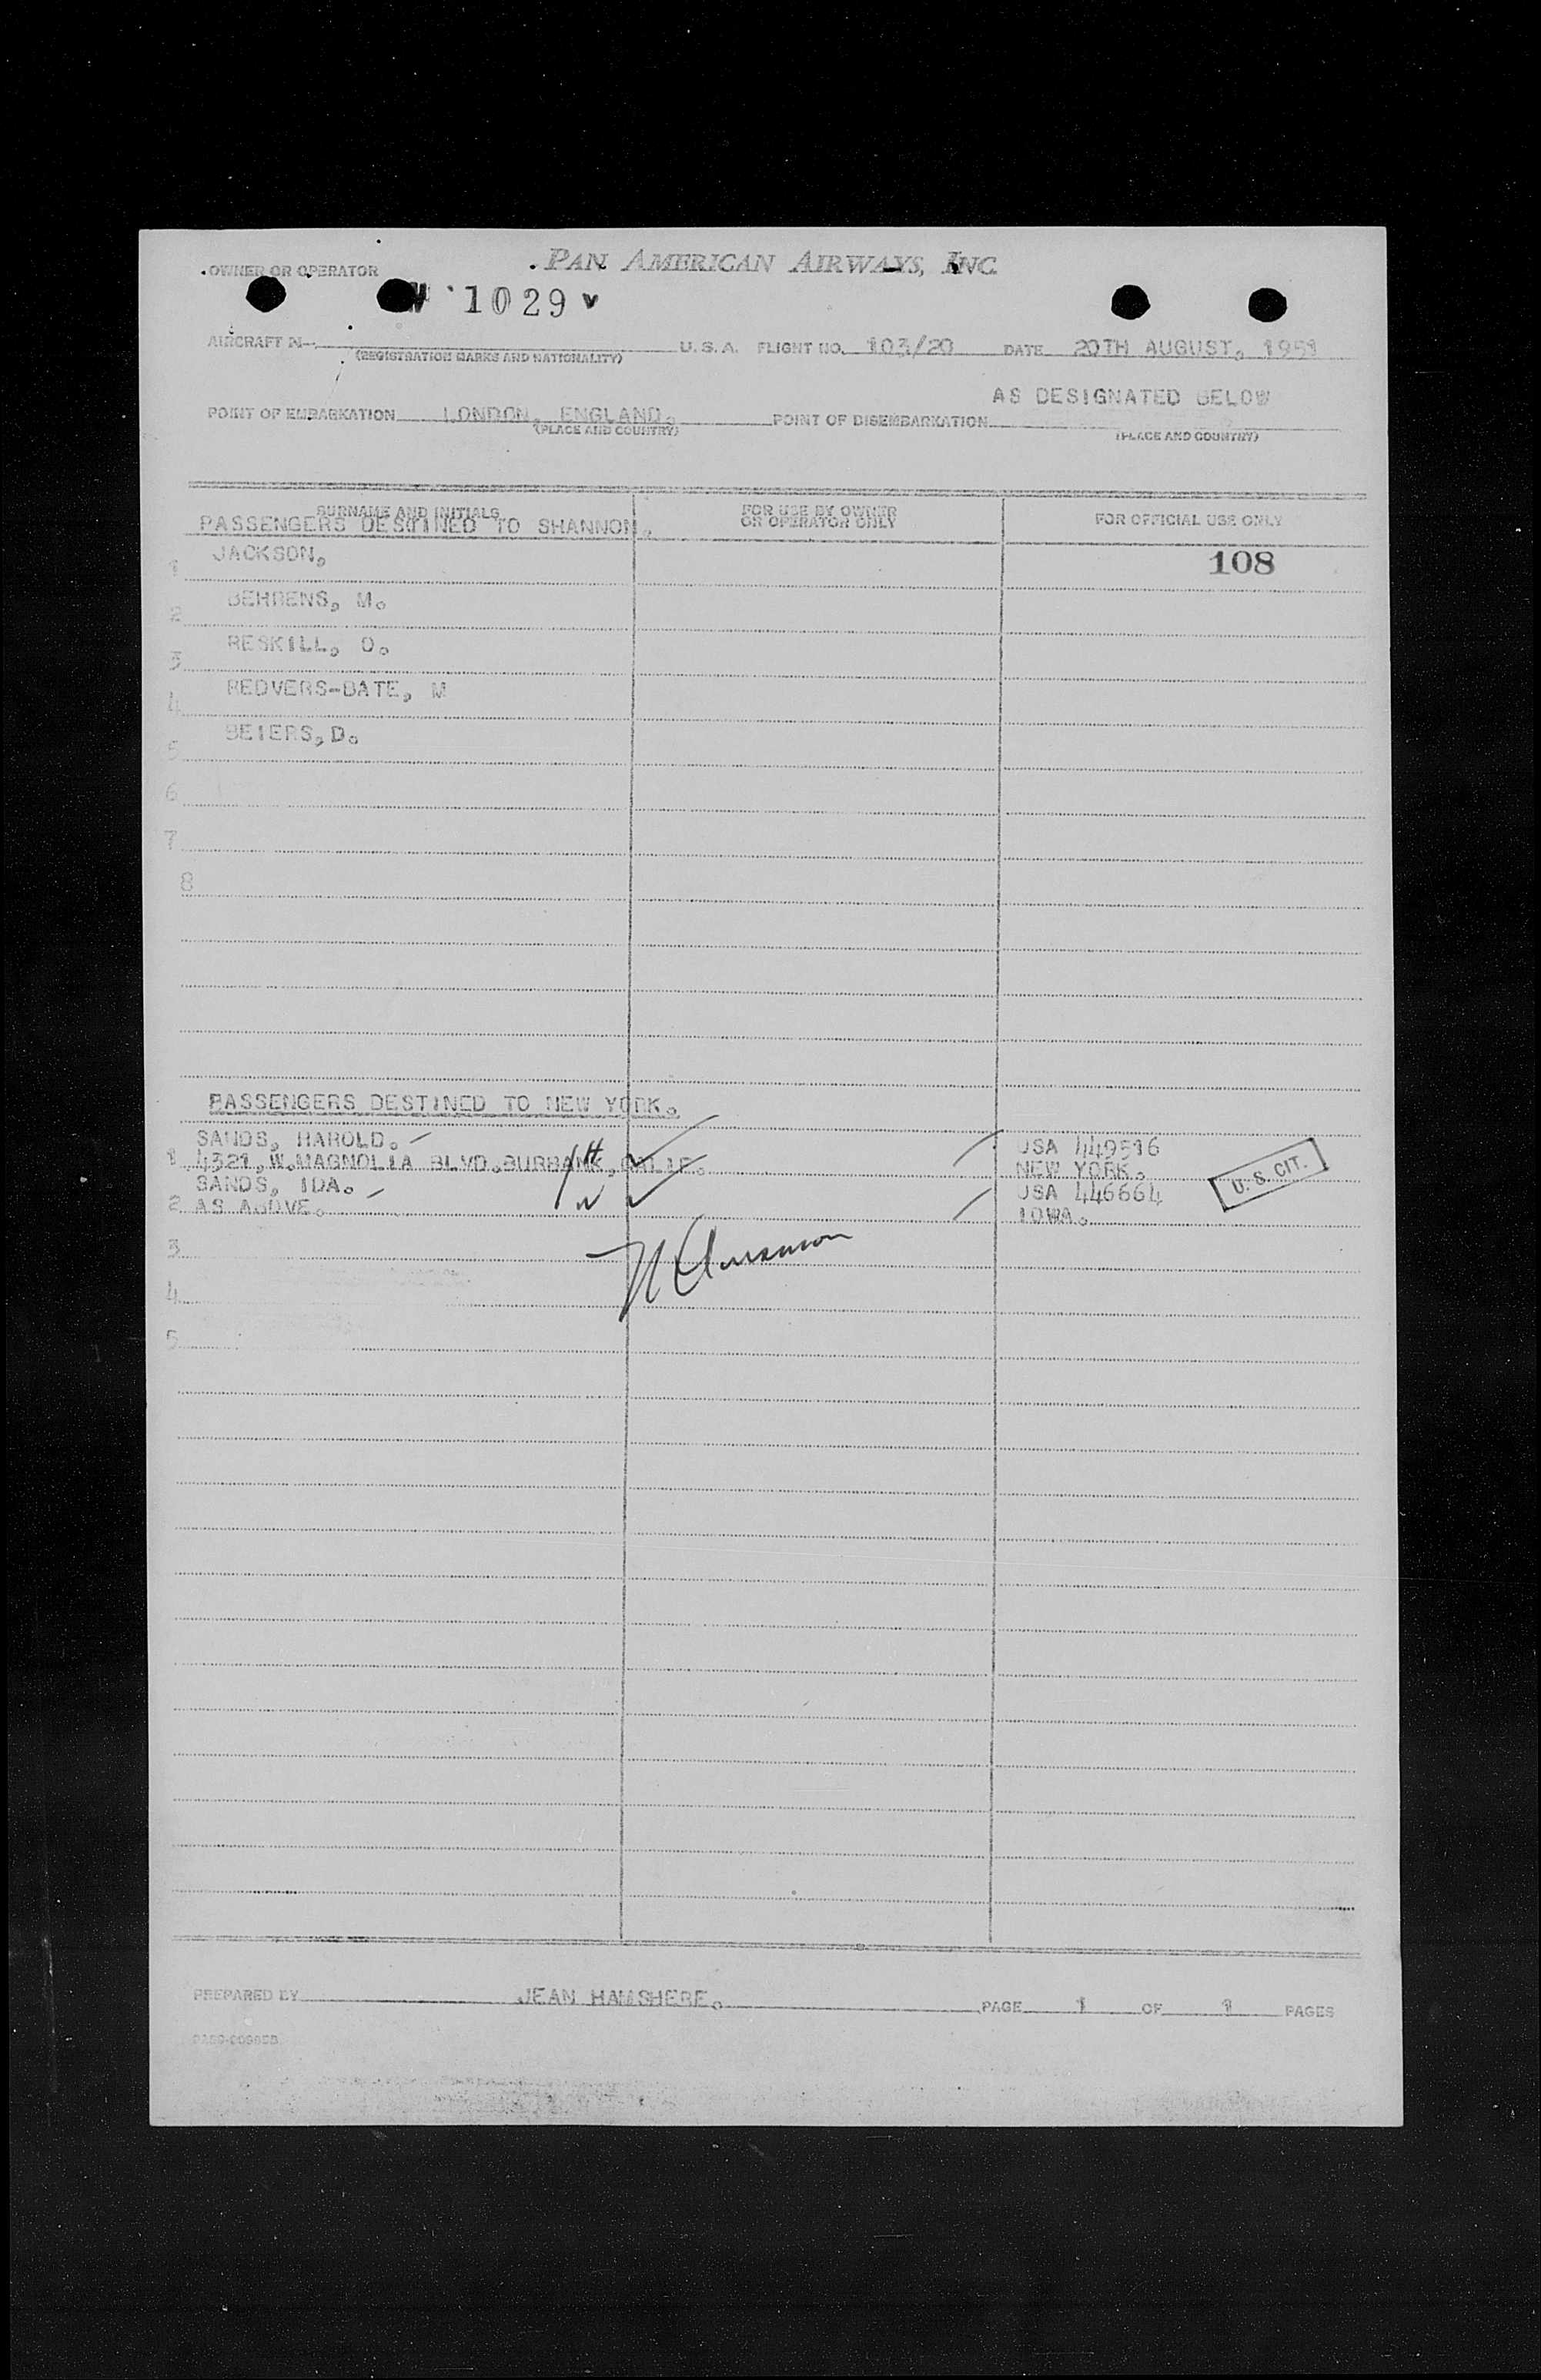 OWNER OR OPERATOR PAN AMERICAN AIRWAYS, INC.
1029 V
AIRCRAFT N— (REGISTRATION MARKS AND NATIONALITY) U.S.A. FLIGHT NO. 103/20 DATE 20TH AUGUST, 1951
AS DESIGNATED BELOW
POINT OF EMBARKATION LONDON, ENGLAND. POINT OF DISEMBARKATION
(PLACE AND COUNTRY) (PLACE AND COUNTRY)
SURNAME AND INITIALS FOR USE BY OWNER OR OPERATOR ONLY FOR OFFICIAL USE ONLY
PASSENGERS DESTINED TO SHANNON.
1 JACKSON, 108
2 BEHRENS, M.
3 RESKILL, O.
4 REDVERS-BATE, M
5 BEIERS, D.
6
7
8
PASSENGERS DESTINED TO NEW YORK.
SANDS, HAROLD. USA 449516
1 4321, W.MAGNOLIA BLVD.BURBANK, CALIF. NEW YORK.
SANDS, IDA. USA 446664 U. S. CIT.
2 AS ABOVE. IOWA.
3
4
5
PREPARED BY JEAN HAMSHERE. PAGE 1 OF 1 PAGES